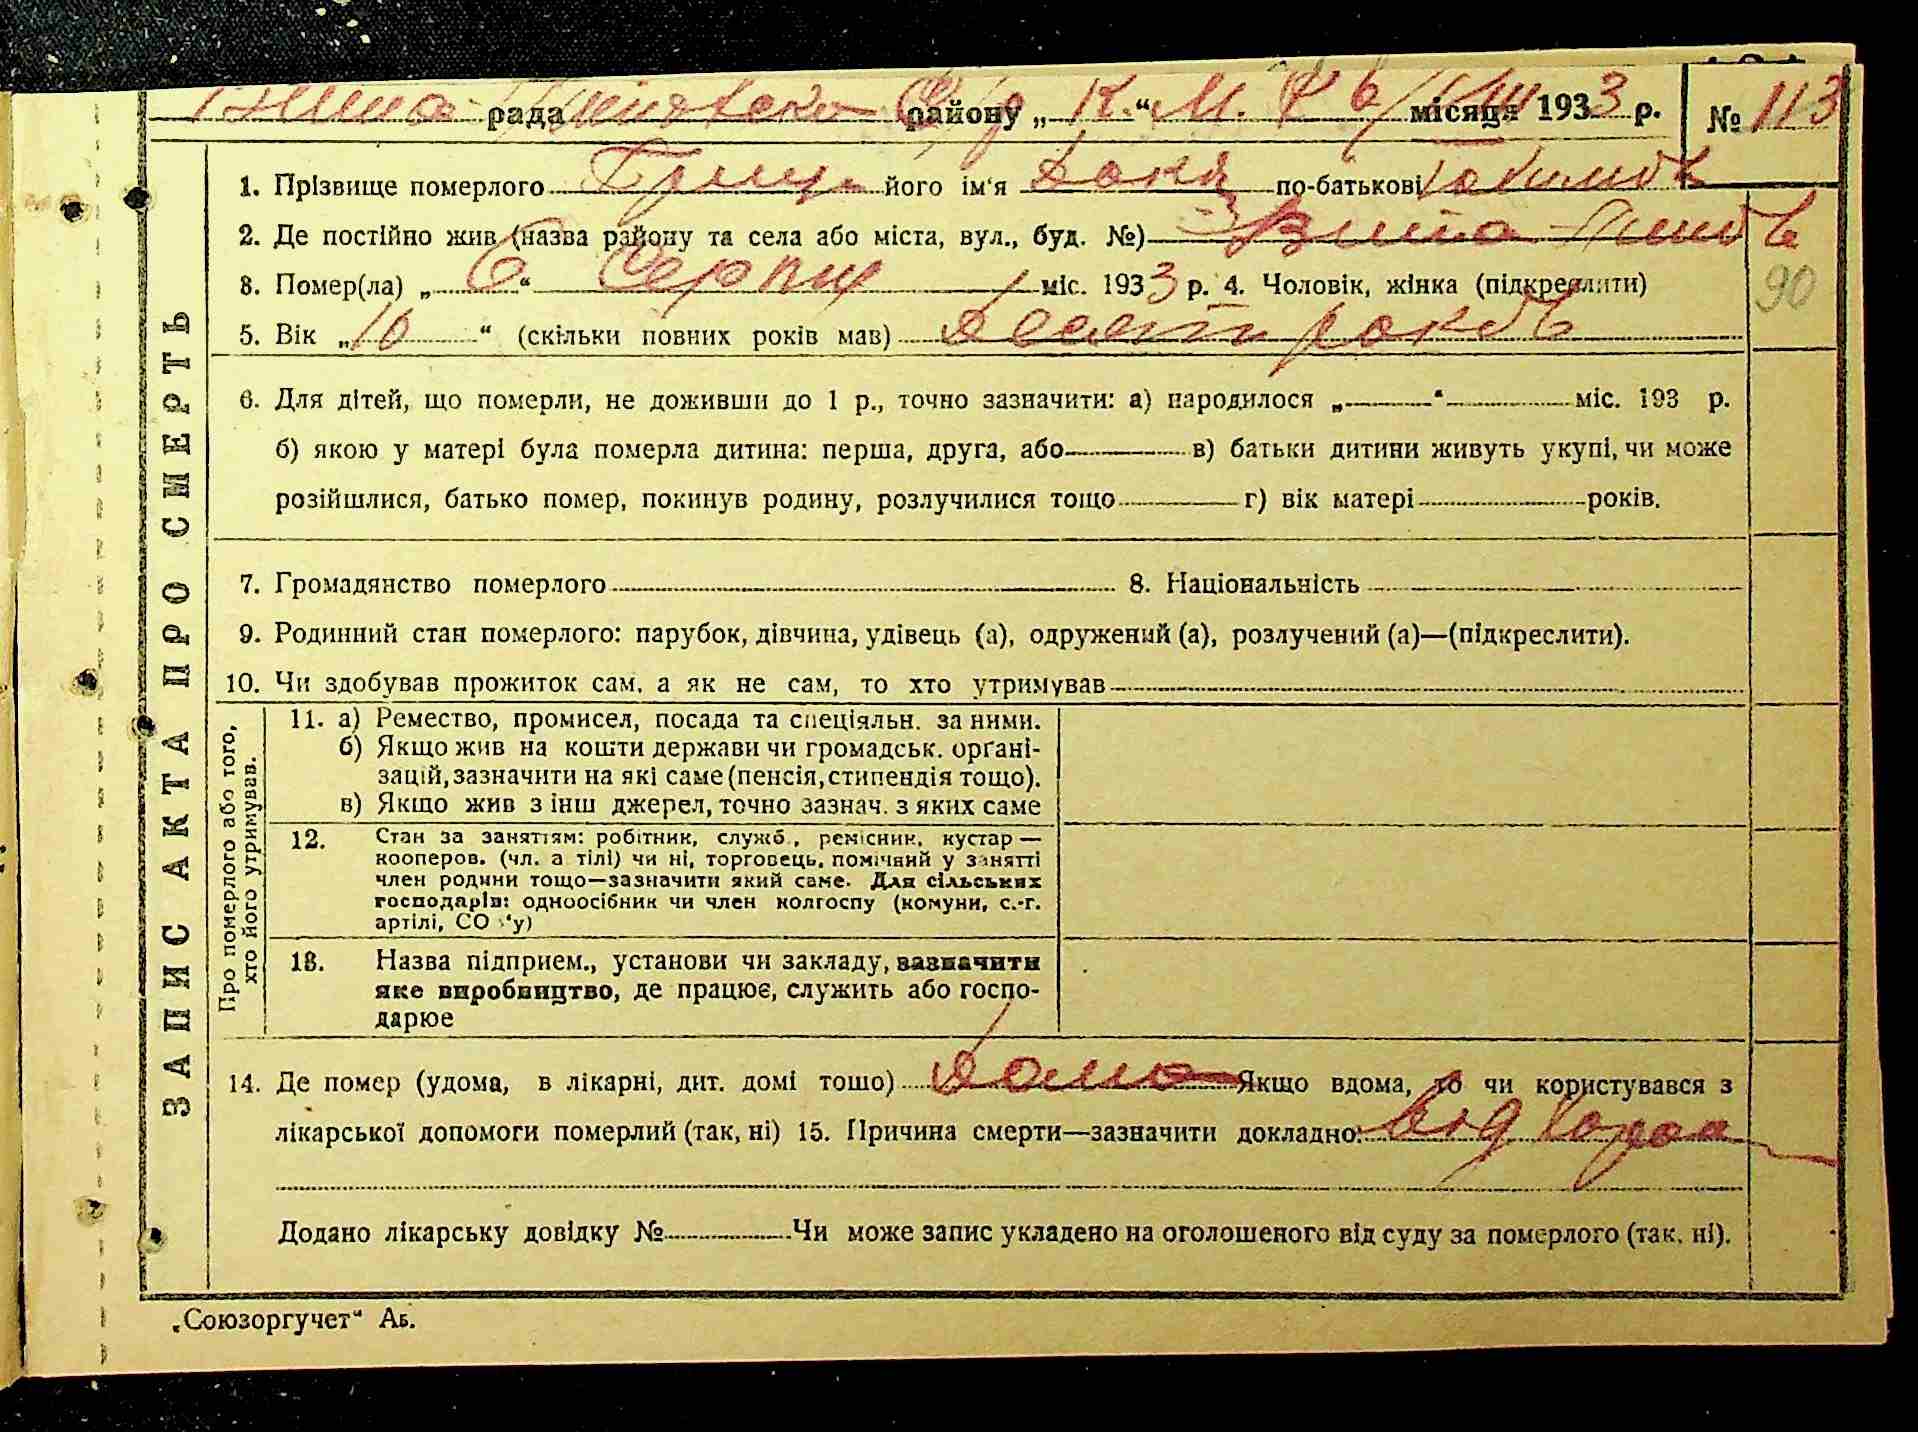 рада району „ К. М. 6/VIII місяця 1933 р. № 113
1. Прізвище померлого Гриц його ім‘я по-батькові
2. Де постійно жив (назва району та села або міста, вул., буд. №) З Вита
8. Помер(ла) „ 6 “ Серпня міс. 1933 р. 4. Чоловік, жінка (підкреслити)
90
5. Вік „ 10 “ (скільки повних років мав) Десять років
6. Для дітей, що померли, не доживши до 1 р., точно зазначити: а) народилося „ “ міс. 193 р.
б) якою у матері була померла дитина: перша, друга, або в) батьки дитини живуть укупі, чи може
розійшлися, батько помер, покинув родину, розлучилися тощо г) вік матері років.
7. Громадянство померлого 8. Національність
9. Родинний стан померлого: парубок, дівчина, удівець (а), одружений (а), розлучений (а)—(підкреслити).
10. Чи здобував прожиток сам, а як не сам, то хто утримував
ЗАПИС АКТА ПРО СМЕРТЬ
Про померлого або того,
хто його утримував.
11. а) Ремество, промисел, посада та спеціяльн. за ними.
б) Якщо жив на кошти держави чи громадськ. орґані-
зацій, зазначити на які саме (пенсія, стипендія тощо).
в) Якщо жив з інш джерел, точно зазнач. з яких саме
12. Стан за заняттям: робітник, служб., ремісник, кустар —
кооперов. (чл. а тілі) чи ні, торговець, помічний у занятті
член родини тощо—зазначити який саме. Для сільських
господарів: одноосібник чи член колгоспу (комуни, с.-г.
артілі, СО ‘у)
18. Назва підприєм., установи чи закладу, зазначити
яке виробництво, де працює, служить або госпо-
дарює
14. Де помер (удома, в лікарні, дит. домі тошо) Дома Якщо вдома, то чи користувався з
лікарської допомоги померлий (так, ні) 15. Причина смерти—зазначити докладно: від
Додано лікарську довідку № Чи може запис укладено на оголошеного від суду за померлого (так, ні).
„Союзоргучет“ Аб.